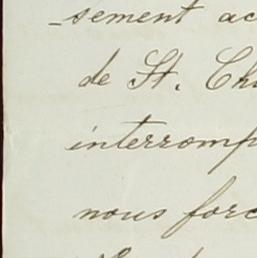 -sement ac
de St. Ch
interromp
nous forc